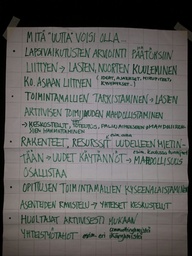 MITÄ "UUTTA" VOISI OLLA...
LAPSIVAIKUTUSTEN ARVIOINTI PÄÄTÖKSIIN
LIITTYEN → LASTEN, NUORTEN KUULEMINEN
KO. ASIAAN LIITTYEN
TOIMINTAMALLIEN TARKISTAMINEN → LASTEN
AKTIIVISEN TOIMIJUUDEN MAHDOLLISTAMINEN
→ MESSKOSTELUT, TOTEUTUS,
SIEN HANKKIMINEN
RAKENTEET, RESURSSIT UUDELLEEN MIETIN-
TÄÄN → UUDET KÄYTÄNNÖT → MAHDOLLISUUS
OSALLISTAA
OPITTUJEN TOIMINTAMALLIEN KYSEENALAISTAMINEN
ASENTEIDEN RAVISTELU → YHTEISET KESKUSTELUT
HUOLTAJAT AKTIIVISESTI MUKAAN
YHTEISTYÖTAHOT